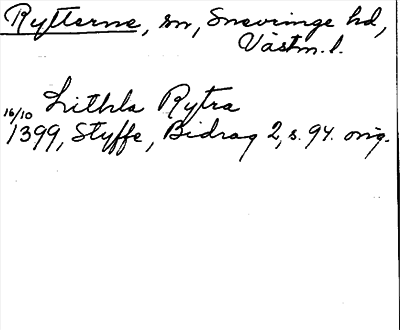 Rytterne, sn, Snevringe hd,
Västm. l.
Lithla Rytra
16/10
1399, Styffe, Bidrag 2, s. 94. orig.